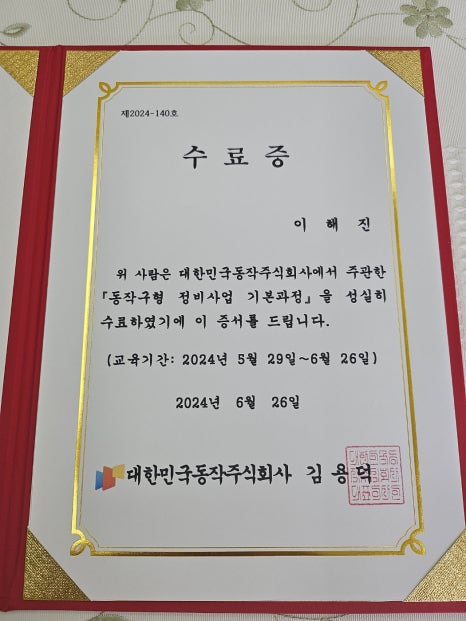 제2024-140호
수 료 증
이 해 진
위 사람은 대한민국동작주식회사에서 주관한
『동작구형 정비사업 기본과정』을 성실히
수료하였기에 이 증서를 드립니다.
(교육기간: 2024년 5월 29일~6월 26일)
2024년 6월 26일
대한민국동작주식회사 김 용 덕